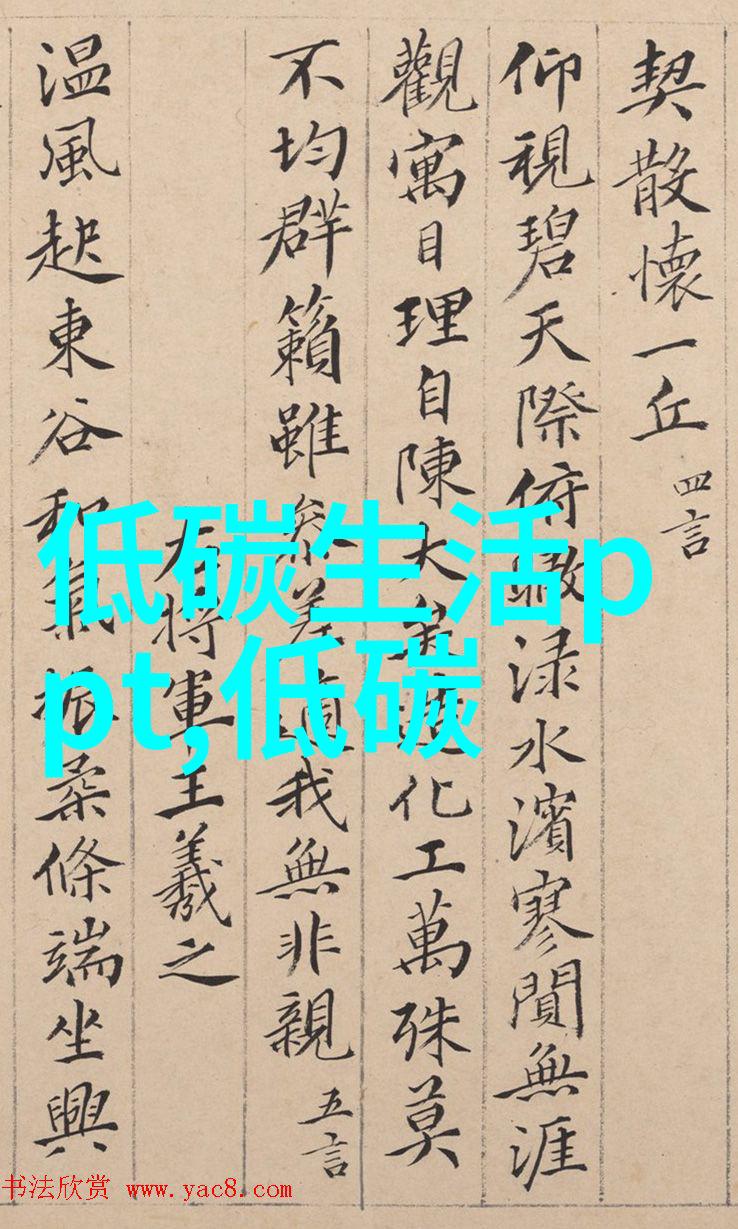 契散懷一丘 四言
仰視碧天際俯瞰渌水濱寥閴無涯
觀寓目理自陳大矣造化工萬殊莫
不均群籟雖參差適我無非親 五言
右將軍王羲之
温風起東谷和氣振柔條端坐興
低碳生活p
pt,低碳
书法欣赏 www.yac8.com